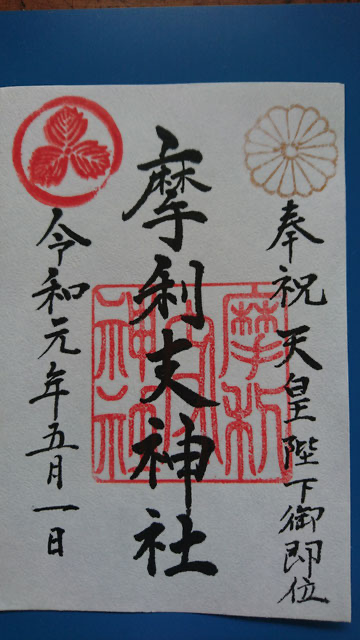 奉祝天皇陛下御即位
摩利支神社
令和元年五月一日